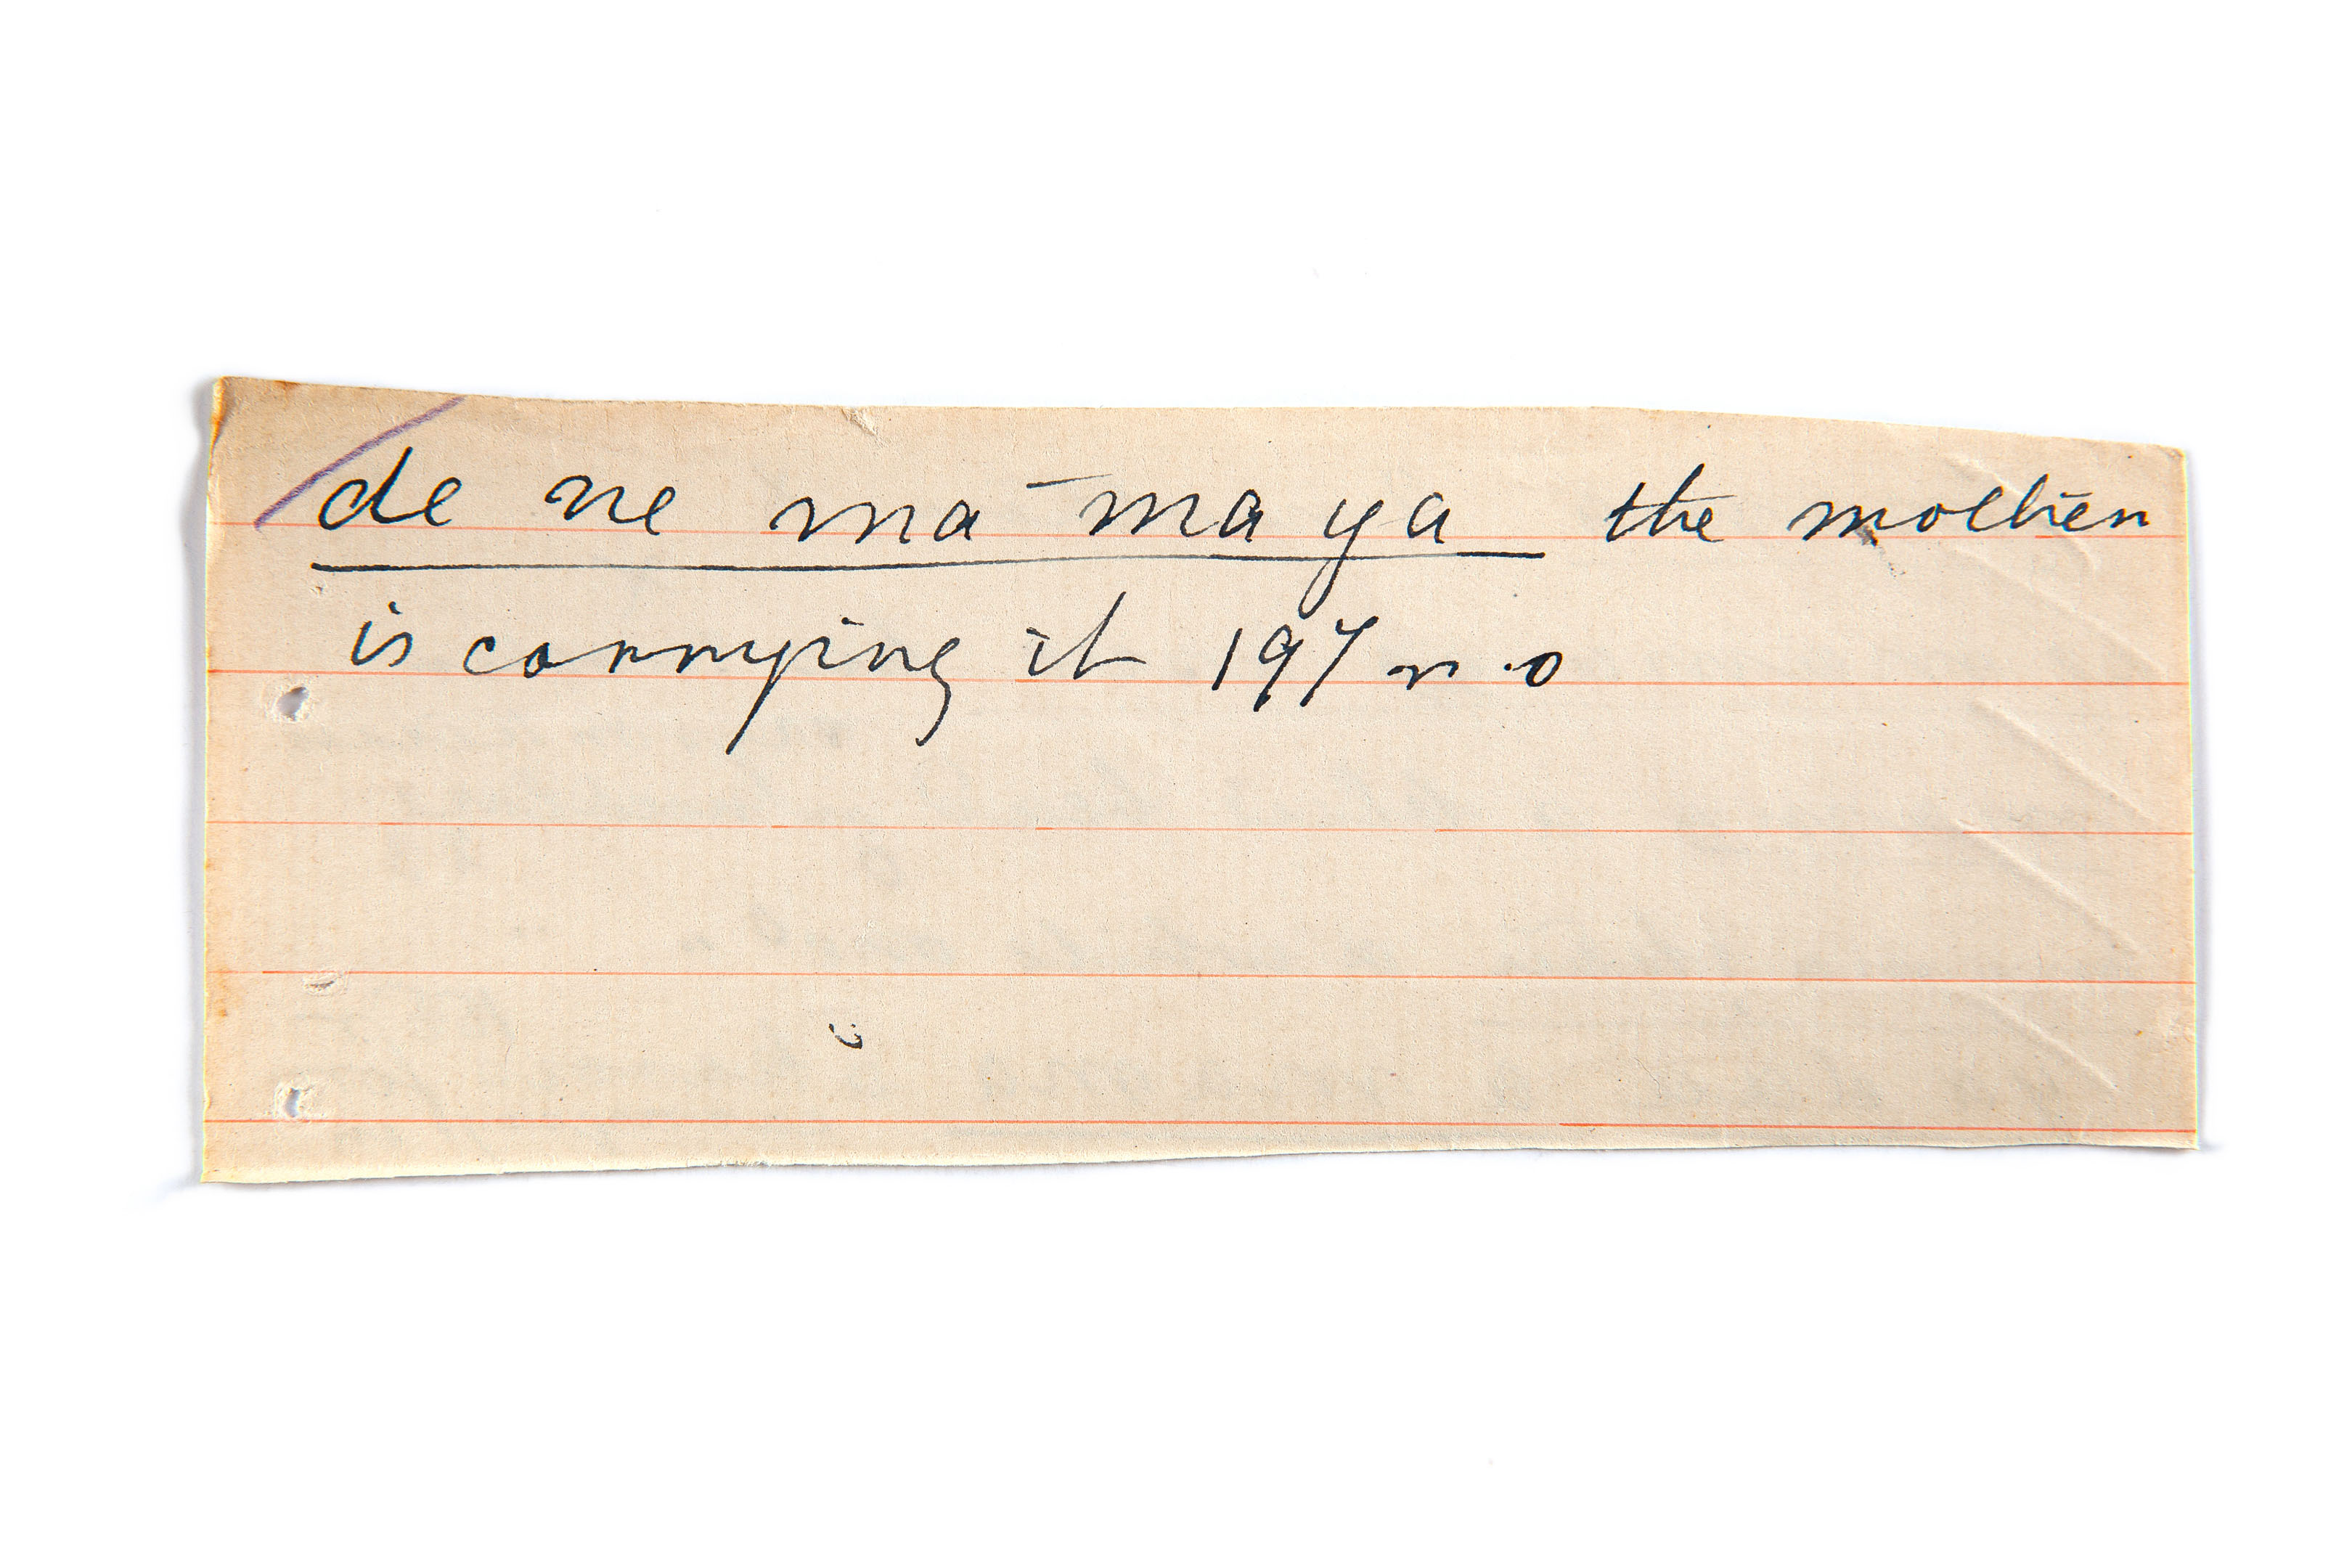 de ne ma ma ya the mother
is carrying it 197 n.o